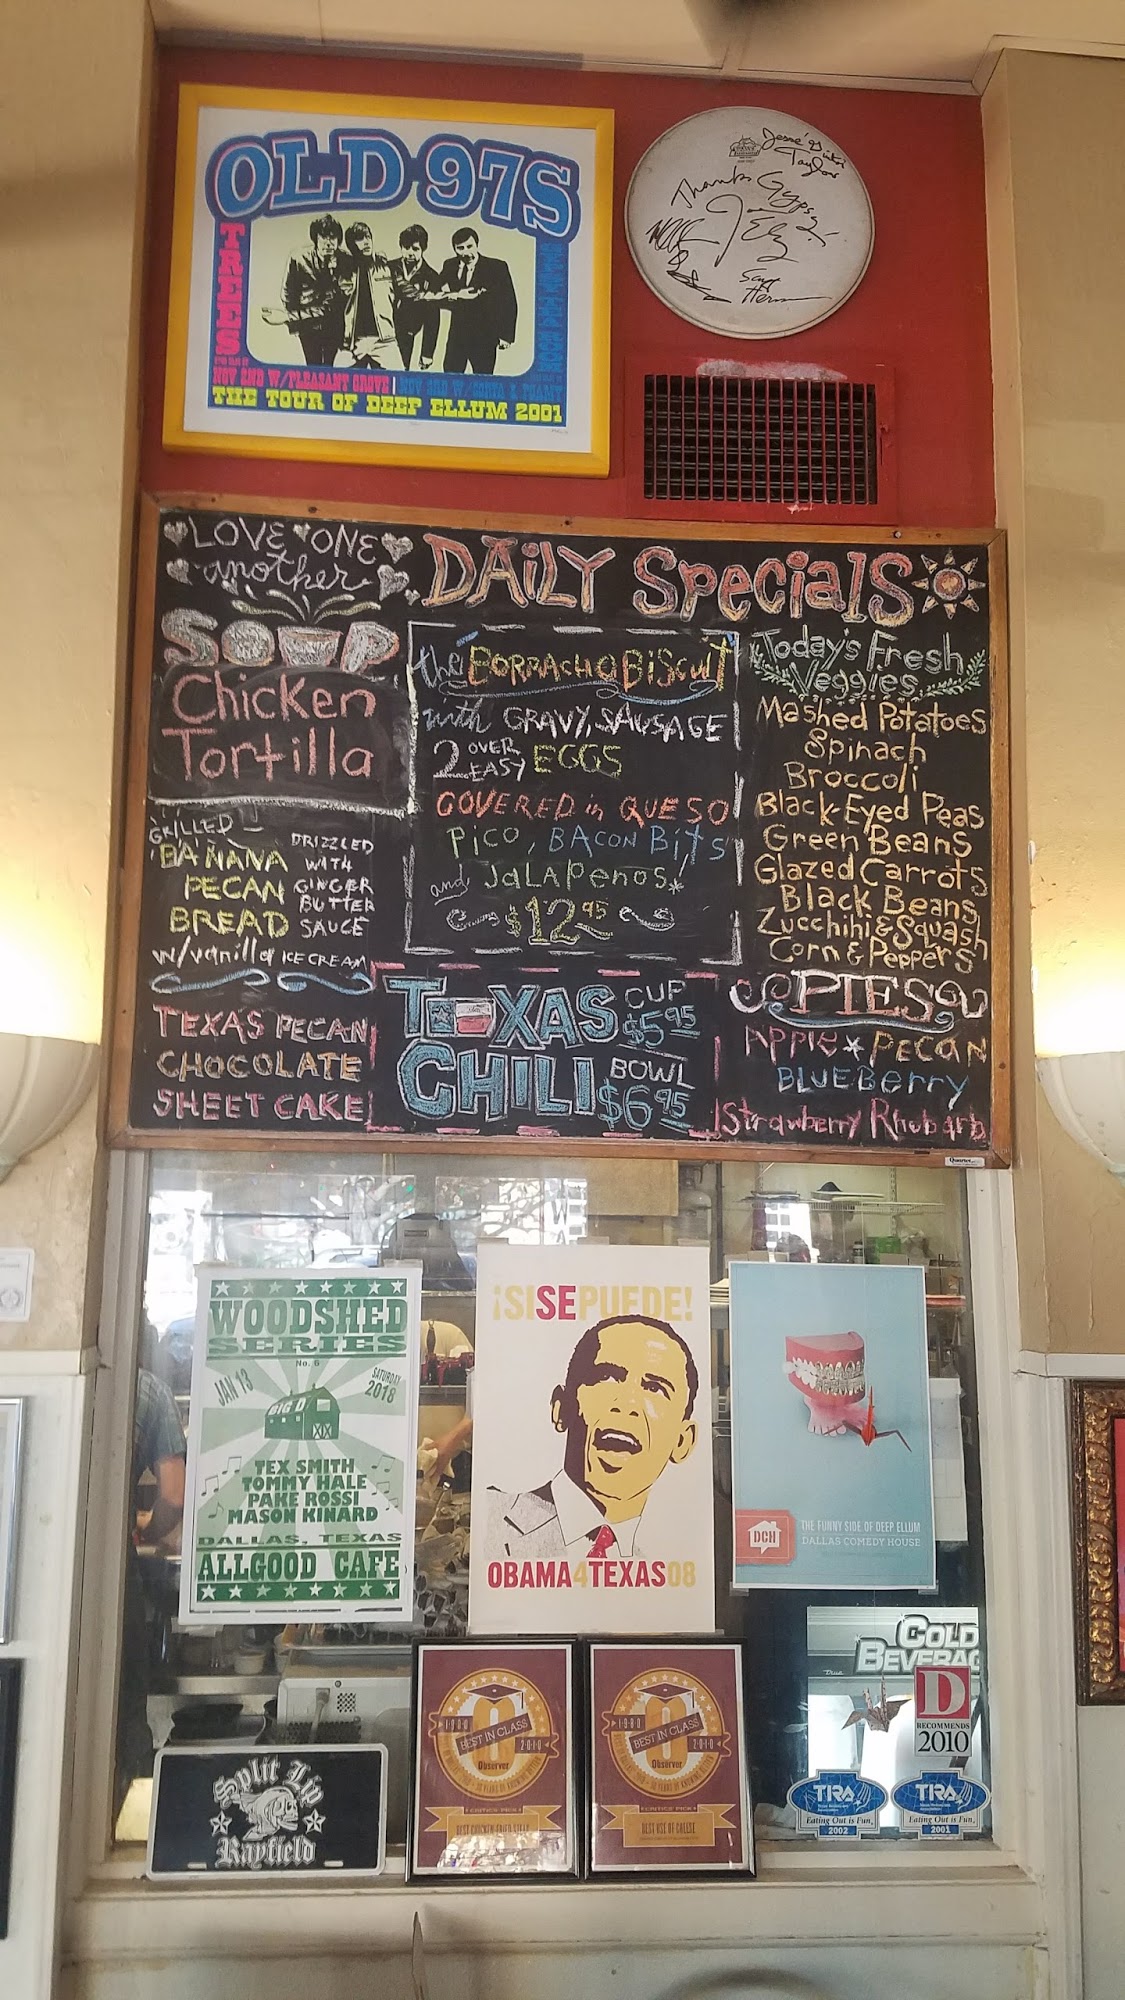 OLD 97S
TREES
NOV 2ND W/PLEASANT GROVE
THE TOUR OF DEEP ELLUM 2001
Thanks Gypsy
LOVE ONE
another
SOUP
Chicken
Tortilla
GRILLED
BANANA
PECAN
BREAD
DRIZZLED
WITH
GINGER
BUTTER
SAUCE
w/vanilla ICE CREAM
TEXAS PECAN
CHOCOLATE
SHEET CAKE
DAiLY SpeciaLS
the BORRACHO BiScuit
with GRAVY, SAUSAGE
2 OVER EASY EGGS
COVERED in QUESO
PiCO, BACON BiTS
and JaLAPeños!
$12.95
TEXAS
CHILI
CUP
$5.95
BOWL
$6.95
Today's Fresh
Veggies
Mashed Potatoes
Spinach
Broccoli
Black-Eyed Peas
Green Beans
Glazed Carrots
Black Beans
Zucchihi & Squash
Corn & Peppers
PIES
APPLE * PECAN
BLUEBerry
Strawberry Rhubarb
Quartet
WOODSHED
SERIES
No. 6
JAN 13
SATURDAY
2018
BIG D
TEX SMITH
TOMMY HALE
PAKE ROSSI
MASON KINARD
DALLAS, TEXAS
ALLGOOD CAFE
¡SISEPUEDE!
OBAMA4TEXAS08
DCH
THE FUNNY SIDE OF DEEP ELLUM
DALLAS COMEDY HOUSE
Split Lip
Rayfield
1980
BEST IN CLASS
2010
Observer
CRITICS PICK
BEST CHICKEN-FRIED STEAK
1980
BEST IN CLASS
2010
Observer
CRITICS PICK
COLD
BEVERAG
D
RECOMMENDS
2010
TIRA
Eating Out is Fun
2002
TIRA
Eating Out is Fun
2001